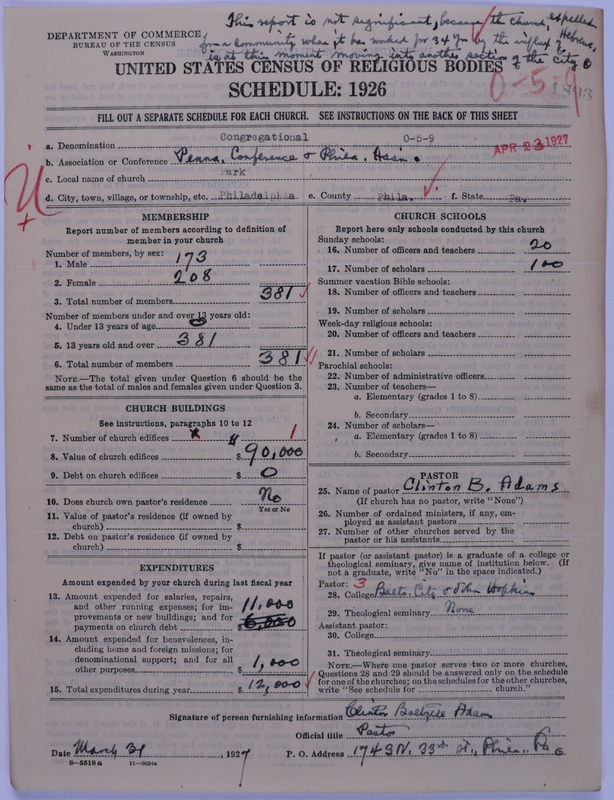 This report is not significant, because the church, expelled
from a community where it has worked for 34 yrs by the influx of Hebrews,
is at this moment moving into another section of the city
DEPARTMENT OF COMMERCE
BUREAU OF THE CENSUS
WASHINGTON
UNITED STATES CENSUS OF RELIGIOUS BODIES
SCHEDULE: 1926
0-5-9
FILL OUT A SEPARATE SCHEDULE FOR EACH CHURCH. SEE INSTRUCTIONS ON THE BACK OF THIS SHEET
a. Denomination Congregational 0-5-9
APR 23 1927
b. Association or Conference Penna. Conference & Phila. Ass'n.
c. Local name of church Park
d. City, town, village, or township, etc. Philadelphia e. County Phila. f. State Pa.
MEMBERSHIP
Report number of members according to definition of
member in your church
Number of members, by sex:
1. Male 173
2. Female 208
3. Total number of members 381
Number of members under and over 13 years old:
4. Under 13 years of age 0
5. 13 years old and over 381
6. Total number of members 381
NOTE.—The total given under Question 6 should be the
same as the total of males and females given under Question 3.
CHURCH BUILDINGS
See instructions, paragraphs 10 to 12
7. Number of church edifices 1
8. Value of church edifices $ 90,000
9. Debt on church edifices $ 0
10. Does church own pastor's residence No
Yes or No
11. Value of pastor's residence (if owned by
church) $
12. Debt on pastor's residence (if owned by
church) $
EXPENDITURES
Amount expended by your church during last fiscal year
13. Amount expended for salaries, repairs,
and other running expenses; for im-
provements or new buildings; and for
payments on church debt $ 11,000
14. Amount expended for benevolences, in-
cluding home and foreign missions; for
denominational support; and for all
other purposes $ 1,000
15. Total expenditures during year $ 12,000
CHURCH SCHOOLS
Report here only schools conducted by this church
Sunday schools:
16. Number of officers and teachers 20
17. Number of scholars 100
Summer vacation Bible schools:
18. Number of officers and teachers
19. Number of scholars
Week-day religious schools:
20. Number of officers and teachers
21. Number of scholars
Parochial schools:
22. Number of administrative officers
23. Number of teachers—
a. Elementary (grades 1 to 8)
b. Secondary
24. Number of scholars—
a. Elementary (grades 1 to 8)
b. Secondary
PASTOR
25. Name of pastor Clinton B. Adams
(If church has no pastor, write "None")
26. Number of ordained ministers, if any, em-
ployed as assistant pastors
27. Number of other churches served by the
pastor or his assistants
If pastor (or assistant pastor) is a graduate of a college or
theological seminary, give name of institution below. (If
not a graduate, write "No" in the space indicated.)
Pastor: 3
28. College Balto. City & John Hopkins
29. Theological seminary None
Assistant pastor:
30. College
31. Theological seminary
NOTE.—Where one pastor serves two or more churches,
Questions 28 and 29 should be answered only on the schedule
for one of the churches; on the schedules for the other churches,
write "See schedule for church."
Signature of person furnishing information Clinton Adams
Official title Pastor
Date March 31, 1927 P. O. Address 1743 N. 33rd St., Phila., Pa
8-5518a 11-9034a